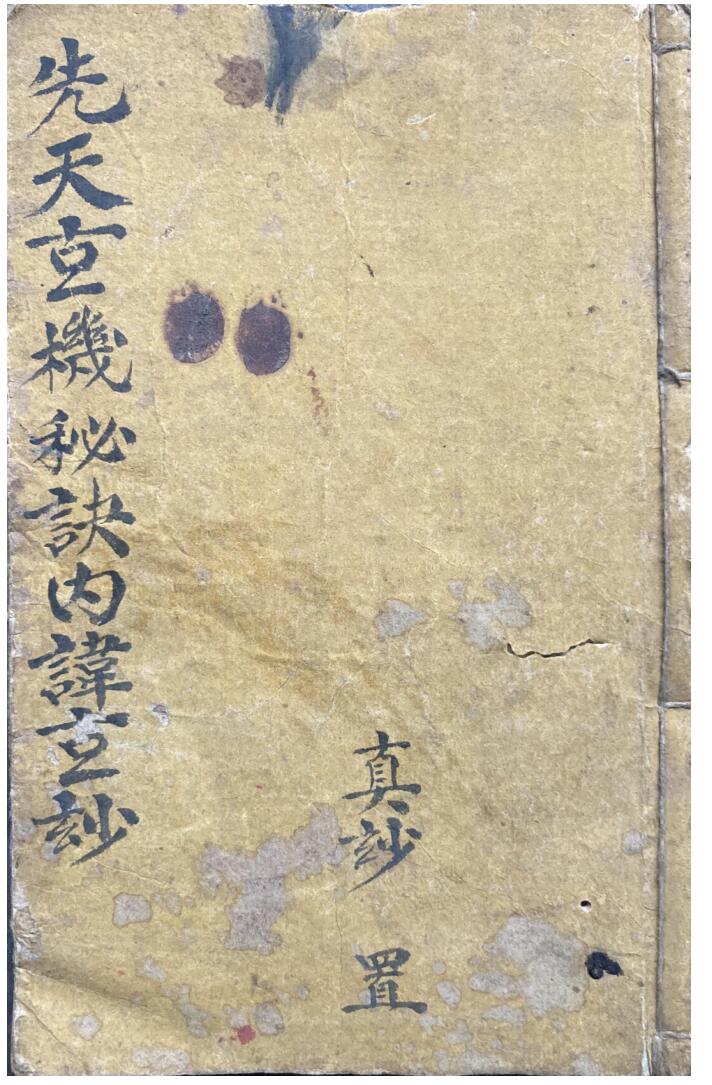 先天玄機秘訣内諱玄玅
真玅 置